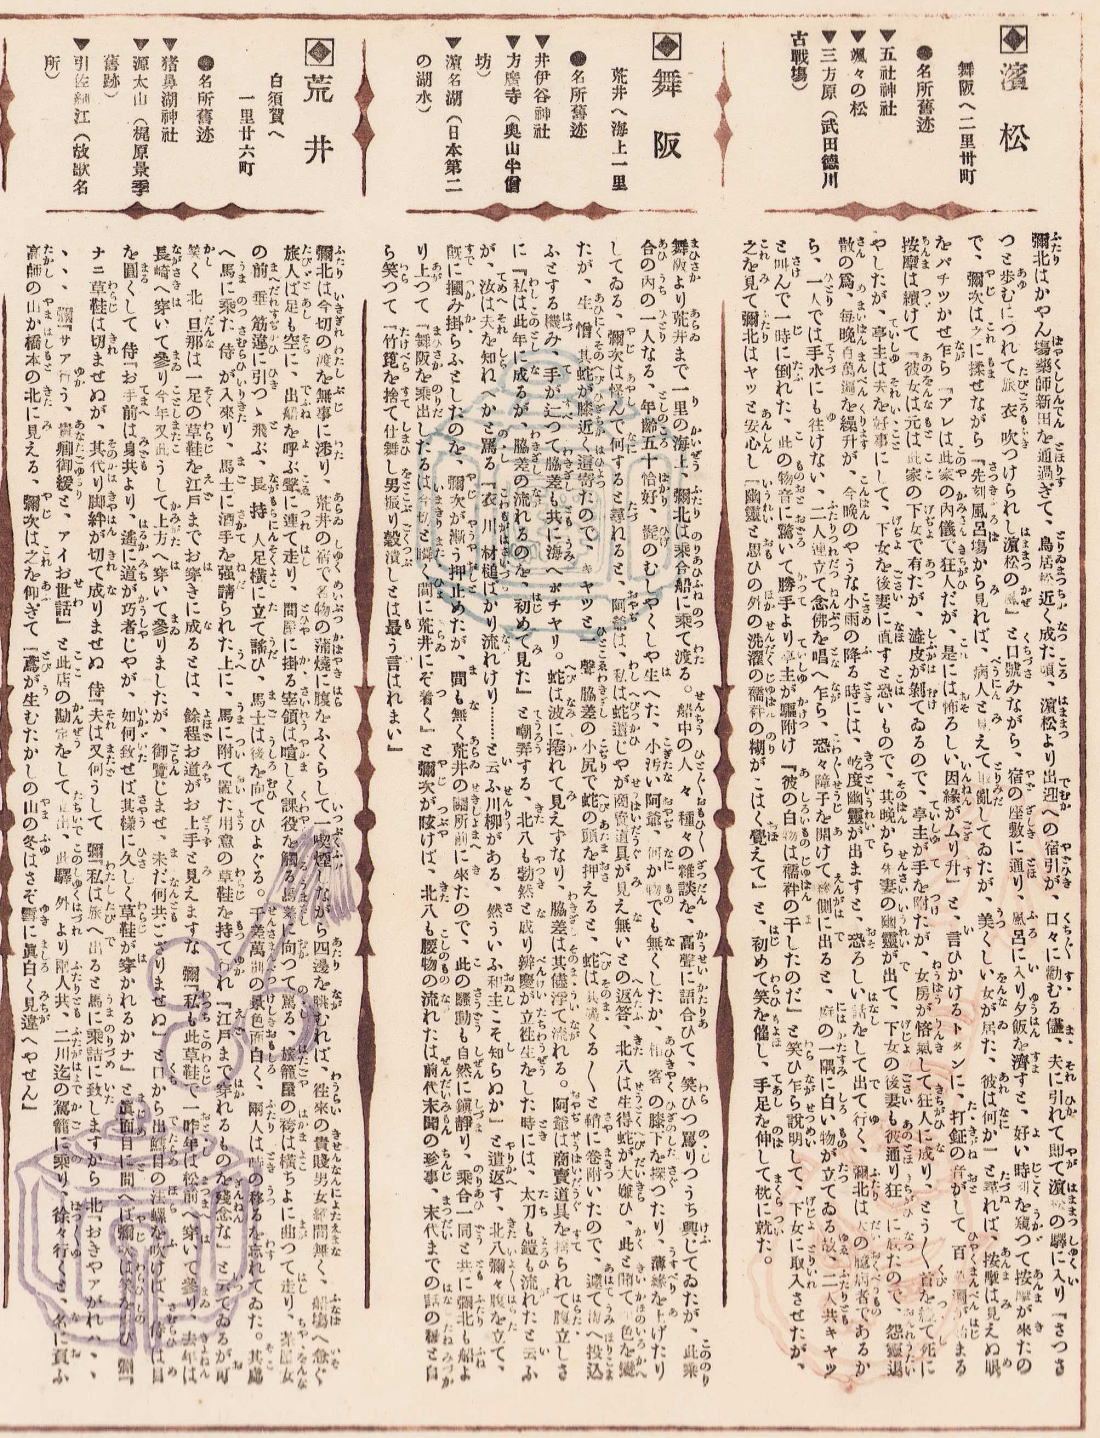 濱松
舞阪へ二里卅町
●名所舊迹
▼五社神社
▼颯々の松
▼三方原（武田德川
古戰塲）
彌北はかやん塲藥師新田を通過ぎて、鳥居松近く成た頃、濱松より出迎への宿引が、口々に勸むる儘、夫に引れて即て濱松の驛に入り『さつさ
つと歩むにつれて旅衣、吹つけられし濱松の風』と口號みながら、宿の座敷に通り、風呂に入り夕飯を濟すと、好い時刻を窺つて按摩が來たの
で、彌次は之に揉せながら『先刻風呂塲から見れば、病人と見えて取亂してゐたが、美くしい女が居た、彼は何か』と尋れば、按摩は見えぬ眼
をパチツかせ乍ら『アレは此家の内儀で狂人だが、是には怖ろしい因緣がムり升』と、言ひかけるトタンに、打鉦の音がして、百万遍が始まる
按摩は續けて『彼女は元は此家の下女で有たが、澁皮が剝てゐるので、亭主が手を附たが、女房が悋氣して狂人に成り、とう〱首を縊て死に
やしたが、亭主は夫を好事にして、下女を後妻に直すと恐いもので、其晩から先妻の幽靈が出て、下女の後妻も彼通り狂人に成たので、怨靈退
散の爲、毎晩百萬遍を繰升が、今晩のやうな小雨の降る時には、屹度幽靈が出ますと、恐ろしい話をして出て行く、彌北は大の臆病者であるか
ら、一人では手水にも往けない、二人連立て念佛を唱へ乍ら、恐々障子を開けて椽側に出ると、庭の一隅に白い物が立てゐる故、二人共キヤツ
と叫んで一時に倒れた、此の物音に驚いて勝手より亭主が驅附け『彼の白物は襦袢の干したのだ』と笑ひ乍ら説明して、下女に取入させたが、
之を見て彌北はヤツと安心し『幽靈と思ひの外の洗濯の襦袢の糊がこはく覺えて』と、初めて笑を催し、手足を伸して枕に就た。
舞阪
荒井へ海上一里
●名所舊迹
▼井伊谷神社
▼方廣寺（奥山半僧
坊）
▼濱名湖（日本第二
の湖水）
舞阪より荒井まで一里の海上、彌北は乘合船に乘て渡る。船中の人々種々の雜談を、高聲に語合ひて、笑ひつ罵りつうち興じてゐたが、此乘
合の内の一人なる、年齡五十恰好、髭のむしやくしや生へた、小汚い阿爺、何か物でも無くしたか、相客の膝下を探つたり、薄緣を上げたり
してゐる、彌次は怪んで何すると尋れると、阿爺は、私は蛇遣じやが商賣道具が見え無いとの返答、北八は生得蛇が大嫌ひ、此と聞て色を變
たが、生憎其蛇が膝近く這寄たので、キヤツと一聲脇差の小尻で蛇の頭を押えると、蛇は其儘くる〱と鞘に卷附いたので、遽て海へ投込
ふとする機み、手が辷つて脇差も共に海へボチヤリ。蛇は波に捲れて見えずなり、脇差は其儘浮て流れる。阿爺は商賣道具を捨られて腹立しさ
に『私は此年に成るが、脇差の流れるのを、初めて見た』と嘲弄する、北八も勃然と成り辨慶が立往生をした時には、太刀も鎧も流れたと云ふ
が、汝は夫を知れへかと罵る『衣川材槌ばかり流れけり……と云ふ川柳がある、然ういふ和主こそ知らぬか』と遣返す、北八彌々腹を立て、
既に摑み掛らふとしたのを、彌次が漸う押止めたが、間も無く荒井の關所前に來たので、此の騷動も自然に鎭靜り、乘合一同と共に彌北も船よ
り上つて『舞阪を乘出したるは今切と瞬く間に荒井にぞ着く』と彌次が呟けば、北八も腰物の流れたは前代未聞の珍事、末代までの話の種と自
ら笑つて『竹篦を捨て仕舞し男振り穀潰しとは最う言はれまい』
荒井
白須賀へ
一里廿六町
●名所舊迹
▼猪鼻湖神社
▼源太山（梶原景季
舊跡）
▼引佐細江（故歌名
所）
彌北は今切の渡を無事に渉り、荒井の宿で名物の蒲燒に腹をふくらして一喫煙しながら四邊を眺むれば、徃來の貴賤男女絡間無く、船塲へ急ぐ
旅人ば足も空に、出船を呼ぶ聲に連て走り、問屋に掛る宰領は喧しく課役を觸る馬差に向つて罵る、旅籠屋の袴は横ちよに曲つて走り、茶屋女
の前垂筋違に引つゝ飛ぶ、長持人足横に立て謠ひ、馬士は後を向てひよぐる。千差萬別の景色面白く、兩人は時の移るを忘れてゐた。其處
へ馬に乘た侍が入來り、馬士に酒手を强請られた上に、馬に附て置た用意の草鞋を持てかれ『江戸まで穿れるものを殘念な』と云てゐるが可
笑く、北『旦那は一足の草鞋を江戸までお穿きに成るとは、餘程お道がお上手と見えますな 彌『私も此草鞋で一昨年は松前へ穿いて參り、去年は
長崎へ穿いて參り今年又此うして上方へ穿いて參りましたが、御覽じませ、未だ何共ございませぬ』と口から出鱈目の法螺を吹けば、侍は目
を圓くして、侍『お手前は身共より、遙に道が巧者じやが、如何致せば其様に久しく草鞋が穿かれるかナ』と眞面目に問へば彌次は笑を忍び 彌『
ナニ草鞋は切ませぬが、其代り脚絆が切て成りませぬ 侍『夫は又何うして 彌『私は旅へ出ると馬に乘詰に致しますから 北『おきやアがれハ、、
、、、彌『サア行う、御緩と、アイお世話』と此店の勘定をして立出、此驛外より兩人共、二川迄の駕籠に乘り、徐々行くと、名に負ふ
高師の山が橋本の北に見える、彌次は之を仰ぎて『鳶が生むたかしの山の冬はさぞ雪に眞白く見違へやせん』